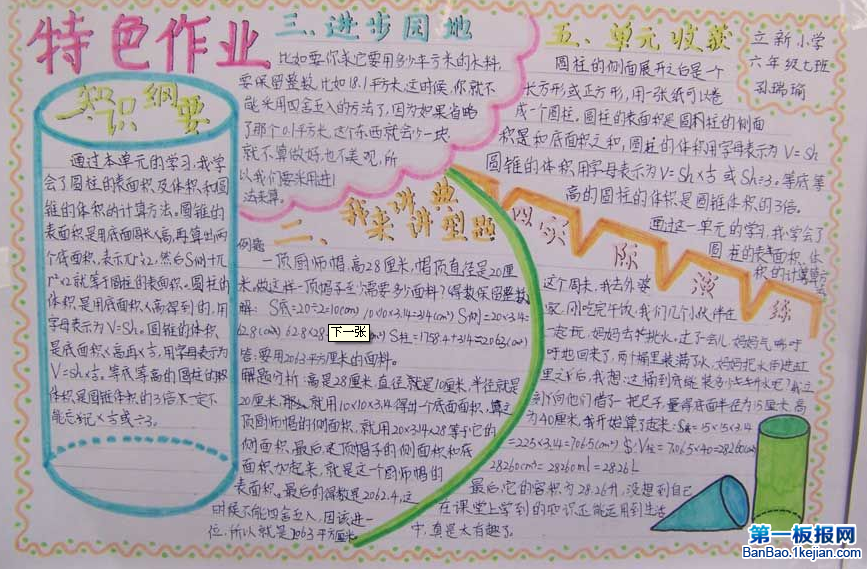 特色作业
知识纲要
通过本单元的学习,我学
会了圆柱的表面积及体积和圆
锥的体积的计算方法。圆锥的
表面积是用底面周长×高,再算出两
个底面积,表示
就等于圆柱的表面积。圆柱的
体积是用底面积×高得到的,用
字母表示为V=Sh。圆锥的体积
是底面积×高再×⅓,用字母表示为
V=Sh×⅓。等底等高的圆柱的
体积是圆锥体积的3倍
能忘记×⅓或÷3。
三、进步园地
比如要你求它要用多少平方米的木料,
要保留整数,比如18.1平方米,这时候,你就不
能采用四舍五入的方法了,因为如果省略
了那个0.1平方米,这个东西就会少一块,
就不算做好,也不美观,所
以我们要采用进1
法来算。
二、我来讲讲典型题
例题
一顶厨师帽,高28厘米,帽顶直径是20厘
米,做这样一顶帽子至少需要多少面料?得数保留整数
解: S底=20÷2=10(cm) 10×10×3.14=314(cm²) S侧=20×3.14=
62.8(cm) 62.8×28
下一张
S柱=1758.4+314≈2063(cm²)
答:要用2063平方厘米的面料。
解题分析:高是28厘米,直径就是10厘米,半径就是
20厘米,那么就用10×10×3.14得出一个底面面积,算这
顶厨师帽的侧面积,就用20×3.14×28等于它的
侧面积,最后这顶帽子的侧面积和底
面积加起来,就是这个厨师帽的
表面积。最后的得数是2062.4,这
时候不能四舍五入,因该进一
位,所以就是2063平方厘米
五、单元收获
圆柱的侧面展开之后是一个
长方形或正方形,用一张纸可以卷
成一个圆柱。圆柱的表面积是圆柱的侧面
积是和底面积之和,圆柱的体积用字母表示为V=Sh
圆锥的体积用字母表示为V=Sh×⅓或Sh÷3。等底等
高的圆柱的体积是圆锥体积的3倍。
通过这一单元的学习,我学会了
圆柱的表面积、体
积的计算
立新小学
六年级七班
孙瑞瑜
四实际演练
这个周末,我去外婆
家,刚吃完午饭,我们几个小伙伴在
一起玩,妈妈去挑水,过了会儿,妈妈气呼
呼地回来了,两个桶里装满了水,妈妈把水倒进缸
里之后,我想:这桶到底能装多少千克水呢?我立
刻问他们借了一把尺子,量得底面半径为15厘米,高
为40厘米,我开始算了起来:S底=15×15×3.14
=225×3.14=706.5(cm²) V柱=706.5×40=28260(cm³)
28260cm³=28260ml=28.26L
最后,它的容积为28.26升,没想到自己
在课堂上学到的知识还能运用到生活
中,真是太有趣了。
第一板报网
BanBao.1kejian.com